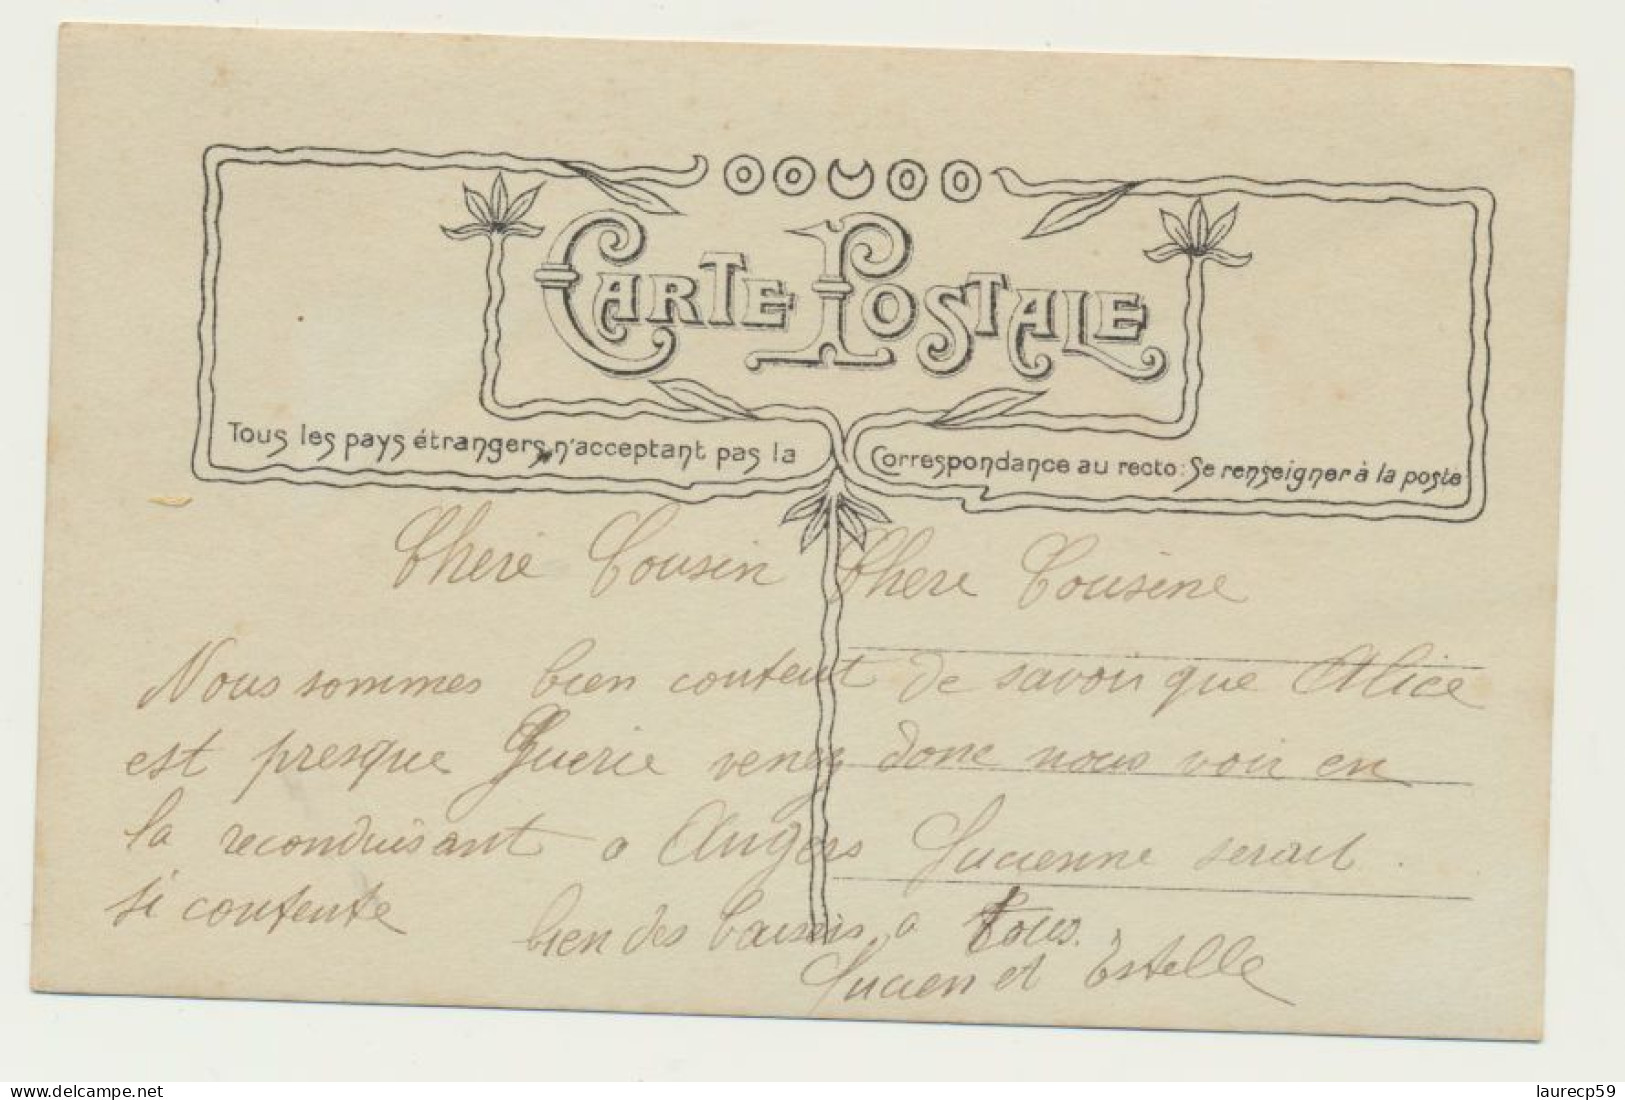 CARTE POSTALE
Tous les pays étrangers n'acceptant pas la Correspondance au recto: Se renseigner à la poste
Cheré Cousin Chere Cousine
Nous sommes bien content de savoir que Alice
est presque Guerie venez donc nous voir en
la reconduisant a Angers Lucienne serait
si contente
bien des baisers a tous.
Lucien et Estelle
laurecp59